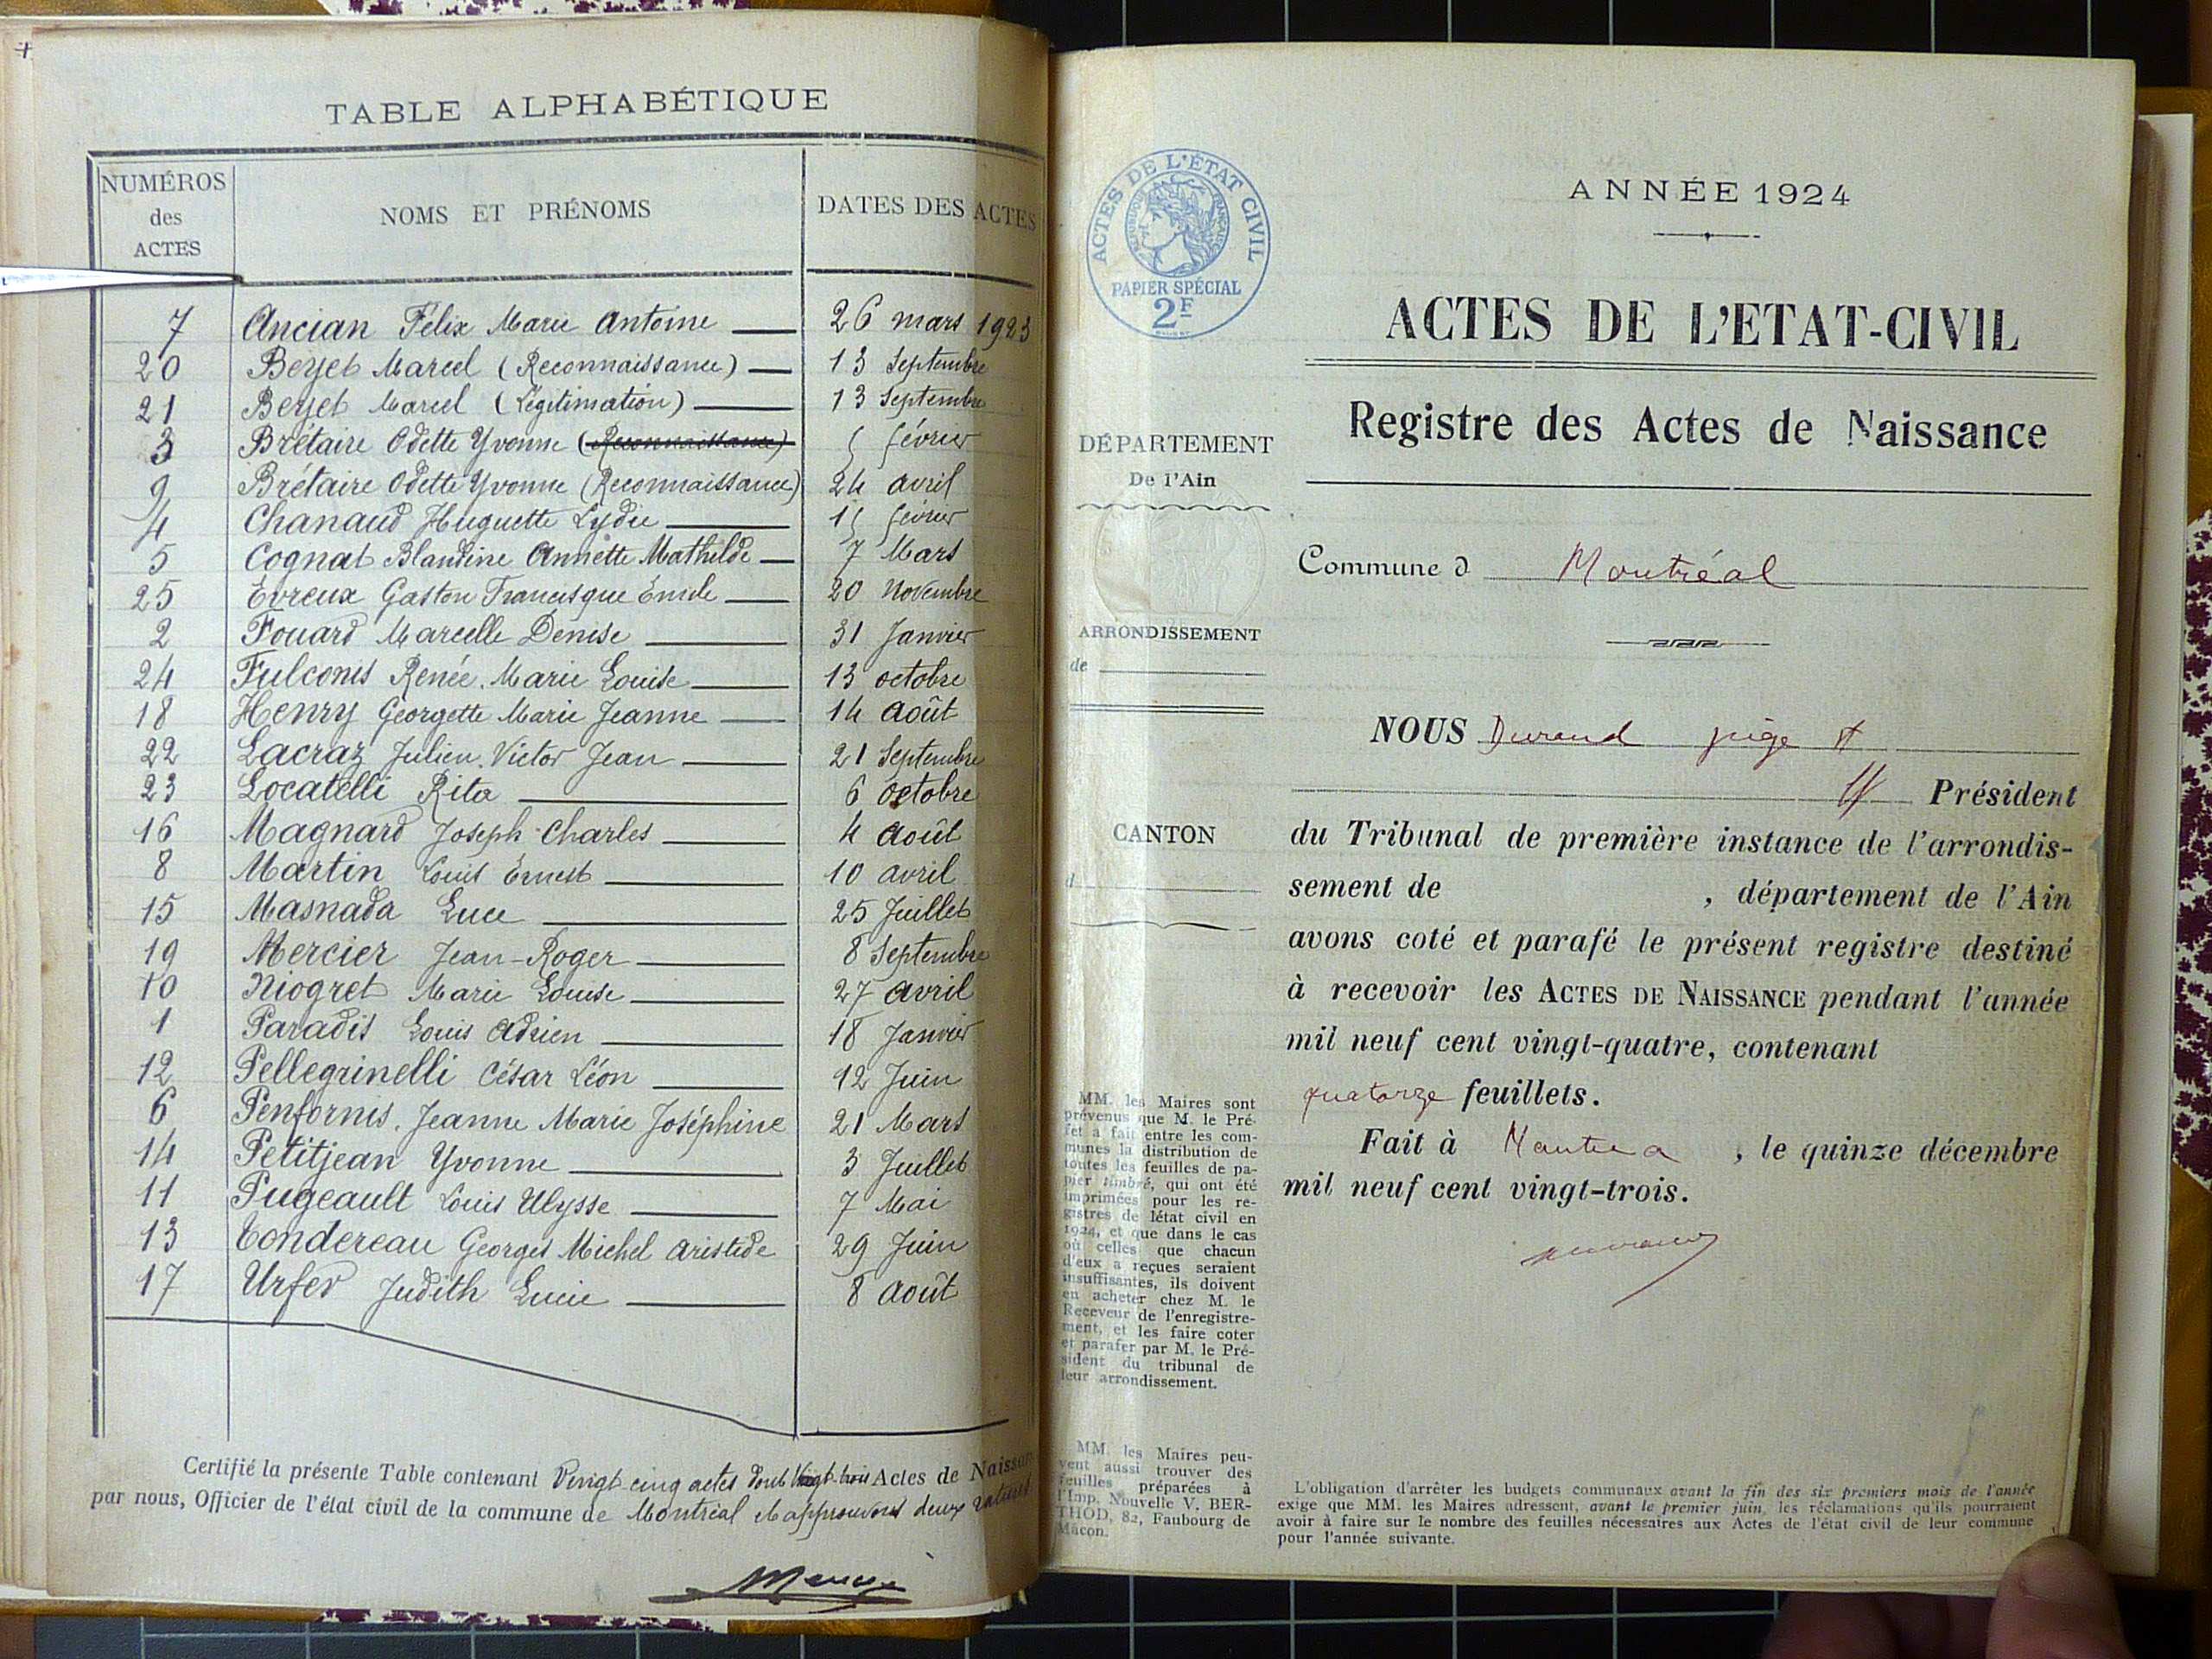 TABLE ALPHABÉTIQUE
NUMÉROS des ACTES NOMS ET PRÉNOMS DATES DES ACTES
7 Ancian Félix Marie Antoine 26 mars 1923
20 Beyet Marcel (Reconnaissance) 13 Septembre
21 Beyet Marcel (Légitimation) 13 Septembre
3 Brétaire Odette Yvonne (Reconnaissance) 5 février
9 Brétaire Odette Yvonne (Reconnaissance) 24 avril
4 Chanaud Huguette Lydie 15 février
5 Cognat Blandine Annette Mathilde 7 Mars
25 Evreux Gaston Francisque Émile 20 Novembre
2 Fouard Marcelle Denise 31 Janvier
24 Fulconis Renée Marie Louise 13 octobre
18 Henry Georgette Marie Jeanne 14 Août
22 Lacraz Julien Victor Jean 21 Septembre
23 Locatelli Rita 6 octobre
16 Magnard Joseph Charles 4 Août
8 Martin Louis Ernest 10 avril
15 Masnada Luce 25 Juillet
19 Mercier Jean-Roger 8 Septembre
10 Niogret Marie Louise 27 avril
1 Paradis Louis Adrien 18 Janvier
12 Pellegrinelli César Léon 12 Juin
6 Penfornis Jeanne Marie Joséphine 21 Mars
14 Petitjean Yvonne 3 Juillet
11 Pugeault Louis Ulysse 7 Mai
13 Tondereau Georges Michel Aristide 29 Juin
17 Urfer Judith Lucie 8 Août
Certifié la présente Table contenant Vingt-cinq actes dont Vingt-trois Actes de Naissance
par nous, Officier de l'état civil de la commune de Montréal et approuvons deux ratures
ACTES DE L'ÉTAT CIVIL
RÉPUBLIQUE FRANÇAISE
PAPIER SPÉCIAL
2F
ANNÉE 1924
ACTES DE L'ETAT-CIVIL
Registre des Actes de Naissance
DÉPARTEMENT
De l'Ain
Commune d Montréal
ARRONDISSEMENT
de
CANTON
d
NOUS Durand juge
Président
du Tribunal de première instance de l'arrondis-
sement de , département de l'Ain
avons coté et parafé le présent registre destiné
à recevoir les ACTES DE NAISSANCE pendant l'année
mil neuf cent vingt-quatre, contenant
quatorze feuillets.
Fait à Nantua , le quinze décembre
mil neuf cent vingt-trois.
MM. les Maires sont
prévenus que M. le Pré-
fet a fait entre les com-
munes la distribution de
toutes les feuilles de pa-
pier timbré, qui ont été
imprimées pour les re-
gistres de létat civil en
1924, et que dans le cas
où celles que chacun
d'eux a reçues seraient
insuffisantes, ils doivent
en acheter chez M. le
Receveur de l'enregistre-
ment, et les faire coter
et parafer par M. le Pré-
sident du tribunal de
leur arrondissement.
MM. les Maires peu-
vent aussi trouver des
feuilles préparées à
l'Imp. Nouvelle V. BER-
THOD, 82, Faubourg de
Mâcon.
L'obligation d'arrêter les budgets communaux avant la fin des six premiers mois de l'année
exige que MM. les Maires adressent, avant le premier juin, les réclamations qu'ils pourraient
avoir à faire sur le nombre des feuilles nécessaires aux Actes de l'état civil de leur commune
pour l'année suivante.